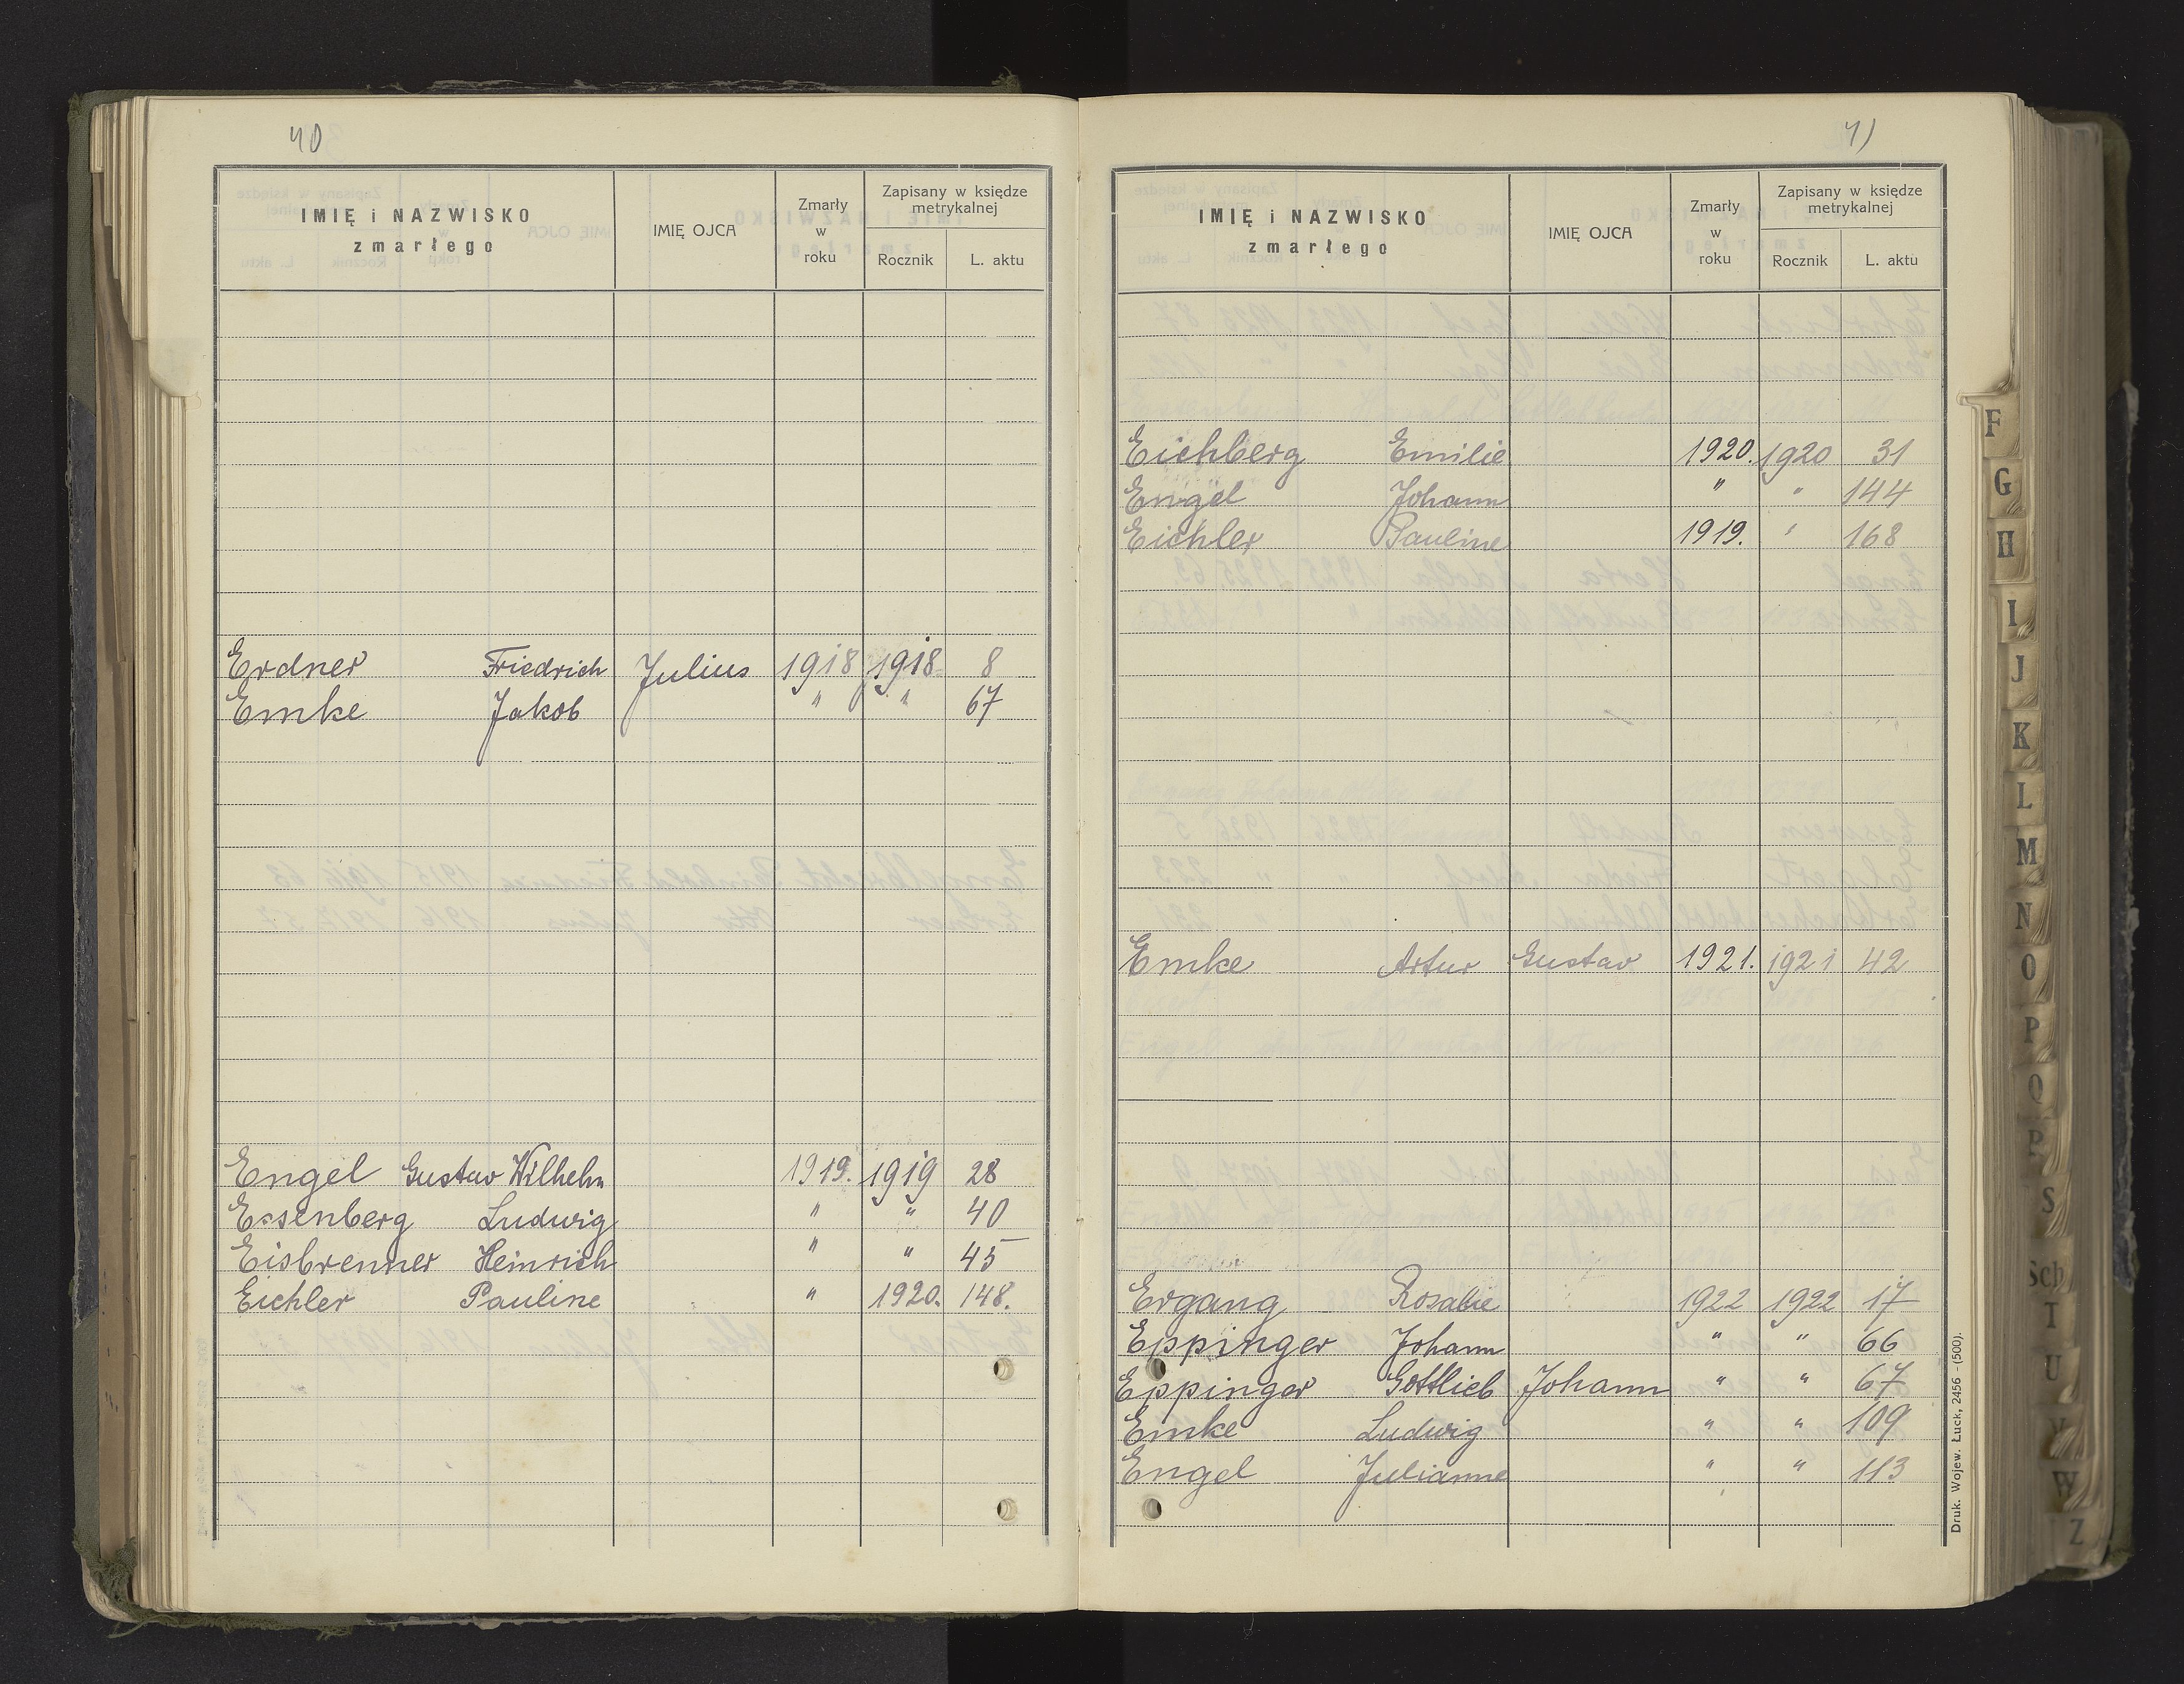 40
IMIĘ i NAZWISKO zmarłego IMIĘ OJCA Zmarły w roku Zapisany w księdze metrykalnej Rocznik L. aktu
Erdner Friedrich Julius 1918 1918 8
Emke Jakob " " 67
Engel Gustav Wilhelm 1919. 1919 28
Essenberg Ludwig " " 40
Eisbrenner Heinrich " " 45
Eichler Pauline " 1920. 148.
41
IMIĘ i NAZWISKO zmarłego IMIĘ OJCA Zmarły w roku Zapisany w księdze metrykalnej Rocznik L. aktu
Eichberg Emilie 1920. 1920 31
Engel Johann " " 144
Eichler Pauline 1919. " 168
Emke Artur Gustav 1921. 1921 42
Ergang Rosalie 1922 1922 17
Eppinger Johann " " 66
Eppinger Gottlieb Johann " " 67
Emke Ludwig " " 109
Engel Julianne " " 113
Druk. Wojew. Łuck, 2456 - (500).
F
G
H
I
J
K
L
M
N
O
P
Q
S
Sch
T
U
V
W
Z